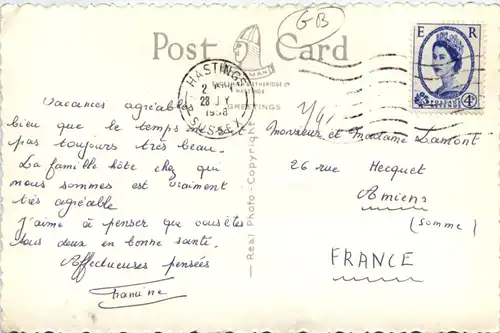 GB
Post Card
E R
NORMAN
HASTINGS
28 JY
1958
SUSSEX
GREETINGS
POSTAGE REVENUE
4D
Vacances agréables
bien que le temps n'est
pas toujours très beau.
La famille hôte chez qui
nous sommes est vraiment
très agréable
J'aime à penser que vous êtes
tous deux en bonne santé.
Affectueuses pensées
Francine
Real Photo - Copyright
Monsieur et Madame Lamont
26 rue Hecquet
Amiens
(Somme)
FRANCE